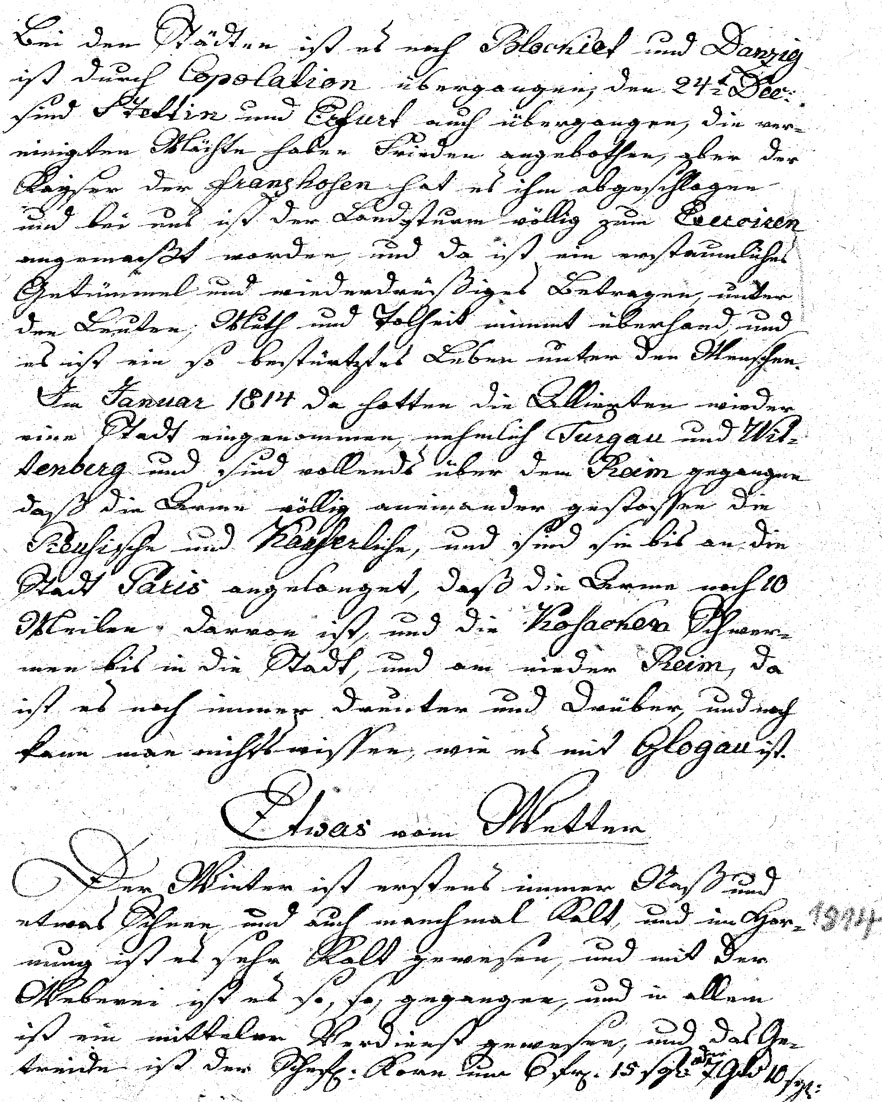 Bei den Städten ist es noch Blockiet und Danzig
ist durch Copolation übergangen, den 24t Dec:
sind Stettin und Erfurt auch übergangen, die ver-
einigten Mächte haben Frieden angebothen, aber der
Kayser der franzhosen hat es ihm abgeschlagen
und bei uns ist der Landsturm völlig zum Exerciren
angemarßt worden, und da ist ein erstaunliches
Getümmel und wiederdrüßiges Betragen, unter
den Leuten, Muth und Tolheit nimmt überhand, und
es ist ein so bestürtztes Leben unter den Menschen.
Im Januar 1814 da hatten die Allierten wieder
eine Stadt eingenommen, nehmlich Turgau und Wit-
tenberg und sind vollends über dem Reim gegangen
daß die Arme völlig aneinander gestossen die
Preusische und Kayserliche, und sind sie bis an die
Stadt Paris angelanget, daß die Arme noch 10
Meilen darvon ist, und die Kosacken Schwer-
men bis in die Stadt, und am nieder Reim, da
ist es noch immer drunter und drüber, und noch
kann man nichts wissen, wie es mit Glogau ist.
Etwas vom Wetter
Der Winter ist erstens immer Naß und
etwas Schnee, und auch manchmal Kalt, und im Hor-
1814
nung ist es sehr Kalt gewesen, und mit der
Weberei ist es so, so, gegangen, und in allem
ist ein mitteler Verdienst gewesen, und das Ge-
treide ist der Schefl: Korn um 6 fr. 15 sgr oder 7 10 sgr: